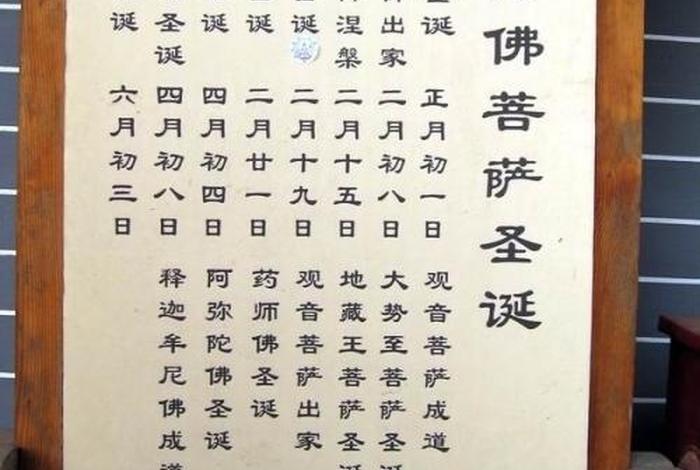 佛菩萨圣诞
圣诞 正月初一日 观音菩萨成道
出家 二月初八日 大势至菩萨圣诞
涅槃 二月十五日 地藏王菩萨圣诞
诞 二月十九日 观音菩萨出家
诞 二月廿一日 药师佛圣诞
诞 四月初四日 阿弥陀佛圣诞
圣诞 四月初八日 释迦牟尼佛成道
诞 六月初三日